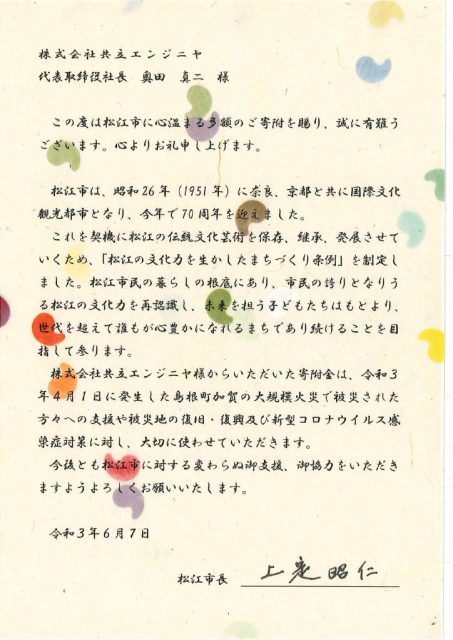 株式会社共立エンジニヤ
代表取締役社長　奥田　真二　様
この度は松江市に心温まる多額のご寄附を賜り、誠に有難う
ございます。心よりお礼申し上げます。
松江市は、昭和26年（1951年）に奈良、京都と共に国際文化
観光都市となり、今年で70周年を迎えました。
これを契機に松江の伝統文化芸術を保存、継承、発展させて
いくため、「松江の文化力を生かしたまちづくり条例」を制定し
ました。松江市民の暮らしの根底にあり、市民の誇りとなりう
る松江の文化力を再認識し、未来を担う子どもたちはもとより、
世代を超えて誰もが心豊かになれるまちであり続けることを目
指して参ります。
株式会社共立エンジニヤ様からいただいた寄附金は、令和3
年4月1日に発生した島根町加賀の大規模火災で被災された
方々への支援や被災地の復旧・復興及び新型コロナウイルス感
染症対策に対し、大切に使わせていただきます。
今後とも松江市に対する変わらぬ御支援、御協力をいただき
ますようよろしくお願いいたします。
令和3年6月7日
松江市長　上定昭仁